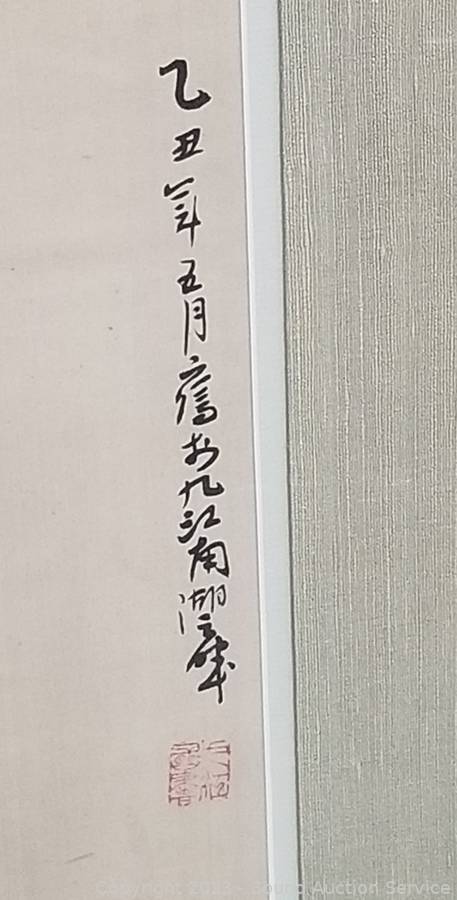 乙丑年五月寫於九江南湖
Copyright 2023 - Sound Auction Service